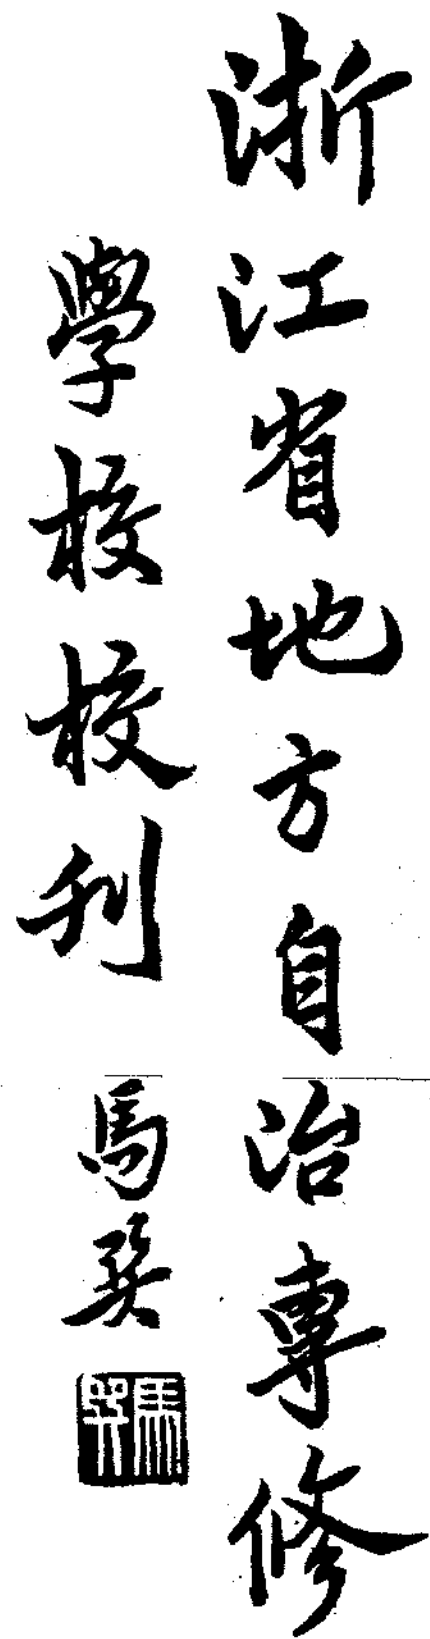 浙江省地方自治專修
學校校刊
馬巽
馬巽